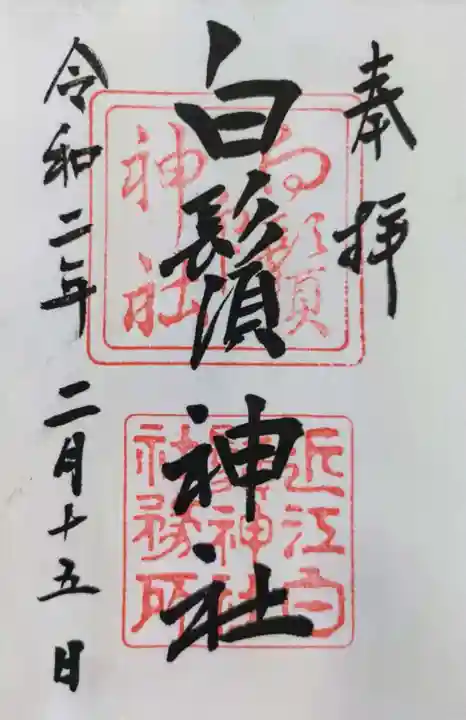 奉拝
白鬚神社
白鬚
神社
近江白
鬚神社
社務所
令和二年 二月十五日